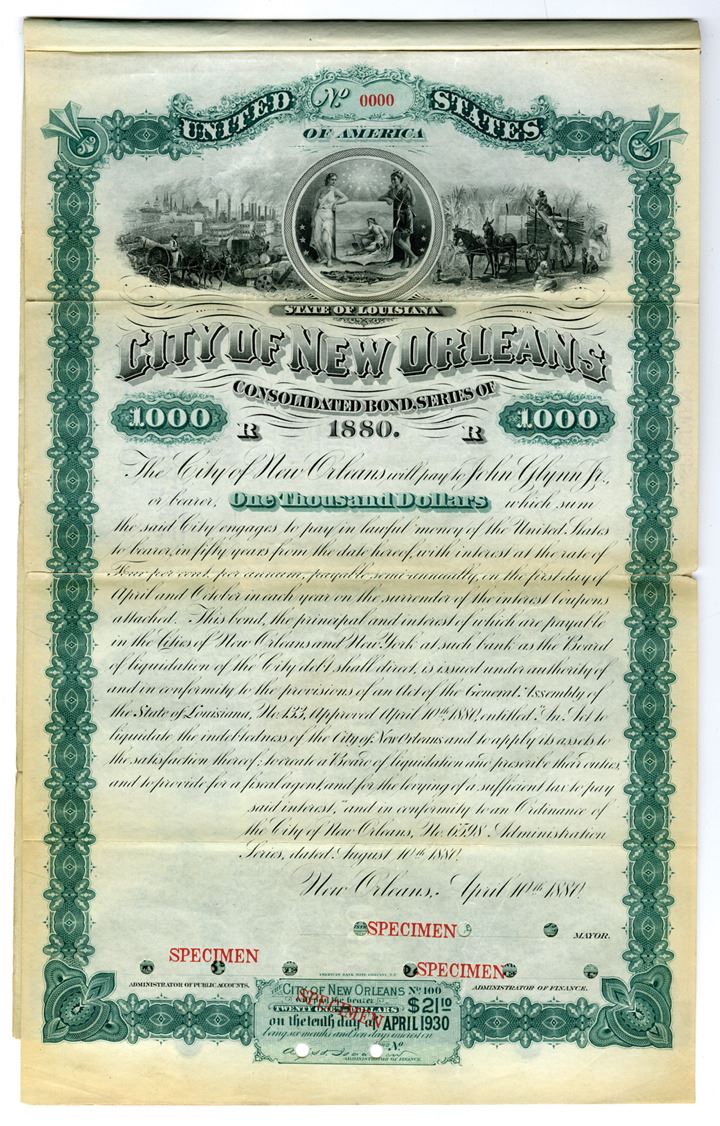 No 0000
UNITED STATES
OF AMERICA
STATE OF LOUISIANA
CITY OF NEW ORLEANS
CONSOLIDATED BOND, SERIES OF
1000 R 1880. R 1000
The City of New Orleans will pay to John Glynn Jr.,
or bearer, One Thousand Dollars which sum
the said City engages to pay in lawful money of the United States
to bearer, in fifty years from the date hereof, with interest at the rate of
Four per cent. per annum, payable semi annually, on the first day of
April and October in each year on the surrender of the interest Coupons
attached. This bond, the principal and interest of which are payable
in the Cities of New Orleans and New York at such bank as the Board
of liquidation of the City debt shall direct, is issued under authority of
and in conformity to the provisions of an Act of the General Assembly of
the State of Louisiana, No. 133, Approved April 10th 1880, entitled "An Act to
liquidate the indebtedness of the City of New Orleans and to apply its assets to
the satisfaction thereof; to create a Board of liquidation and prescribe their duties,
and to provide for a fiscal agent, and for the levying of a sufficient tax to pay
said interest," and in conformity to an Ordinance of
the City of New Orleans, No. 6598 Administration
Series, dated August 10th 1880.
New Orleans, April 10th 1880.
SPECIMEN
MAYOR.
SPECIMEN
SPECIMEN
AMERICAN BANK NOTE COMPANY, N.Y.
ADMINISTRATOR OF PUBLIC ACCOUNTS.
ADMINISTRATOR OF FINANCE.
CITY OF NEW ORLEANS No 100
to the bearer
TWENTY ONE DOLLARS $21 10
SPECIMEN
on the tenth day of APRIL 1930
being six months and ten days interest on
No
ADMINISTRATOR OF FINANCE.